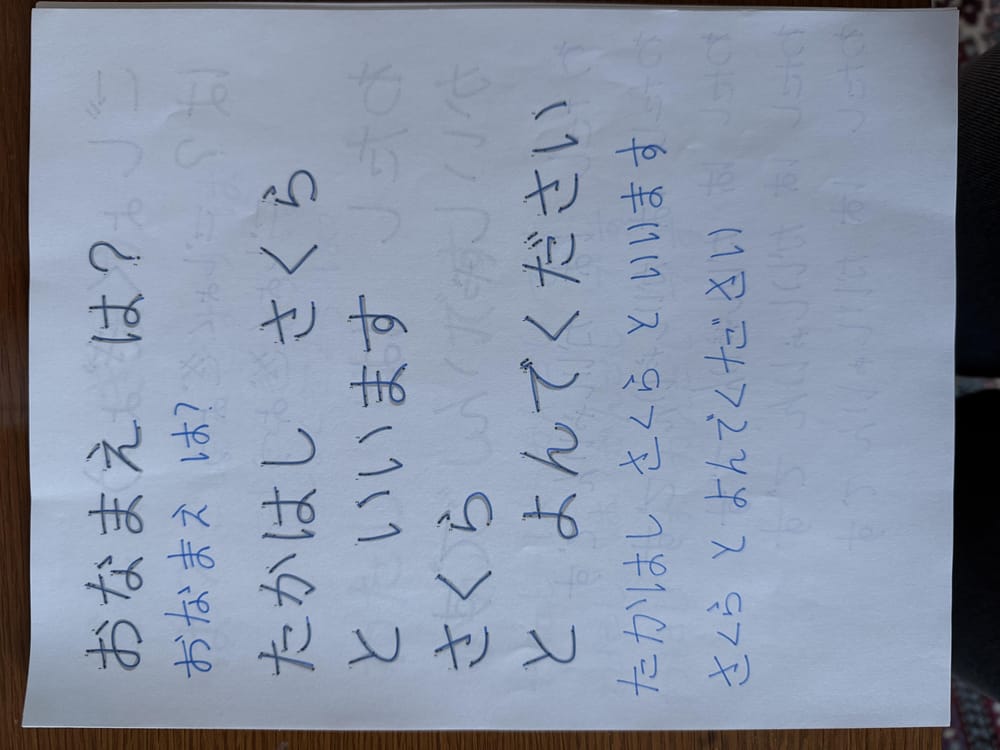 おなまえ は?
おなまえ は?
たかはし さくら
と いいます
さくら
と よんでください
たかはし さくらと いいます
さくら と よんでください